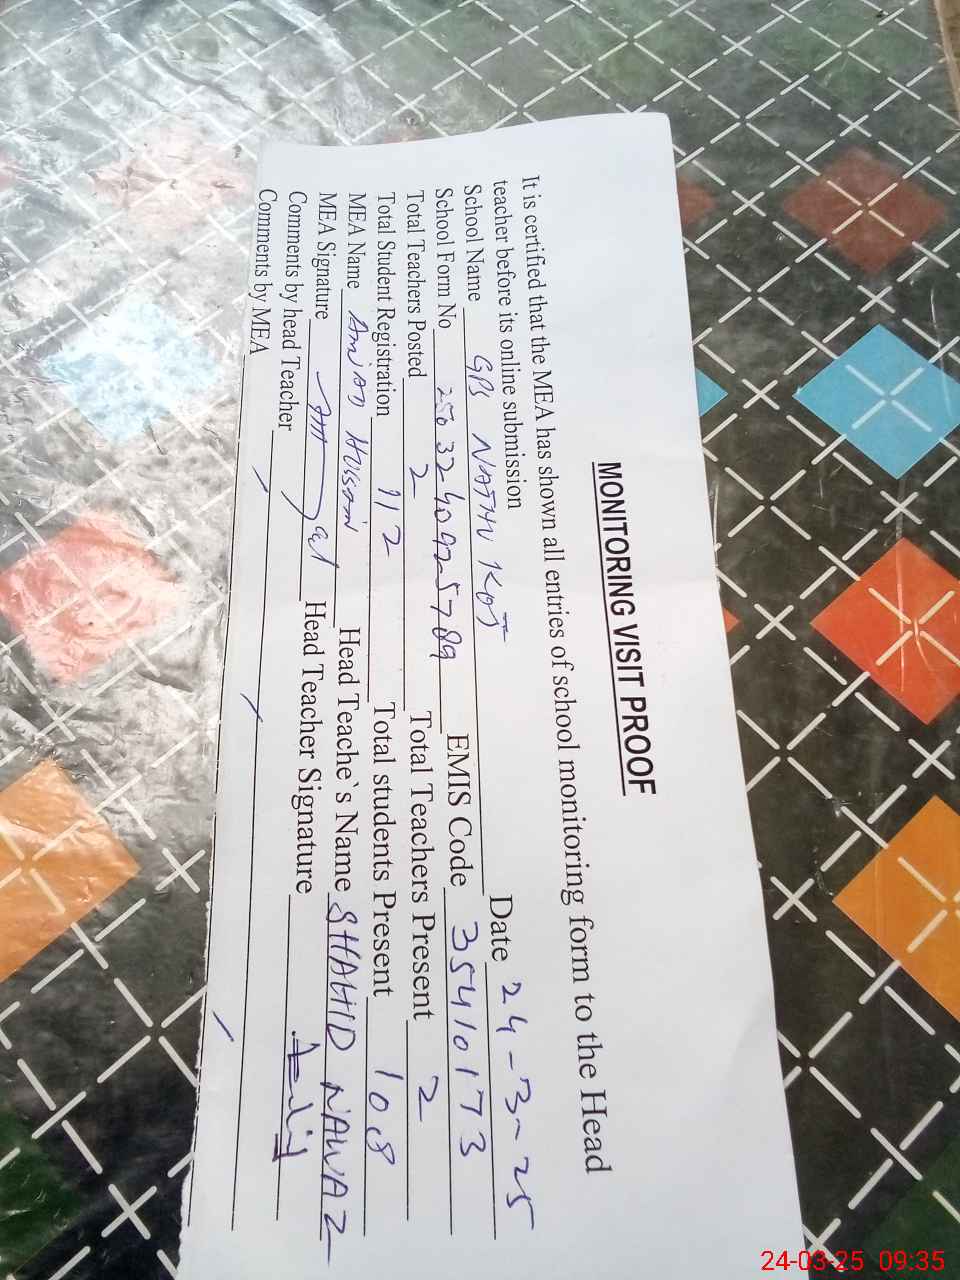 MONITORING VISIT PROOF
It is certified that the MEA has shown all entries of school monitoring form to the Head
teacher before its online submission Date 24-3-25
School Name GPS NATHU KOT
School Form No 2503240925789 EMIS Code 35410173
Total Teachers Posted 2 Total Teachers Present 2
Total Student Registration 112 Total students Present 108
MEA Name AMJAD Hussain Head Teache`s Name SHAHID NAWAZ
MEA Signature Head Teacher Signature
Comments by head Teacher
Comments by MEA
24-03-25 09:35